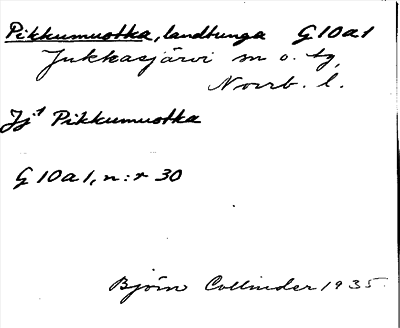 Pikkumuotka, landtunga G10a1
Jukkasjärvi m o. tg,
Norrb. l.
Jj.1 Pikkumuotka
G10a1, n:r 30
Björn Collinder 1935